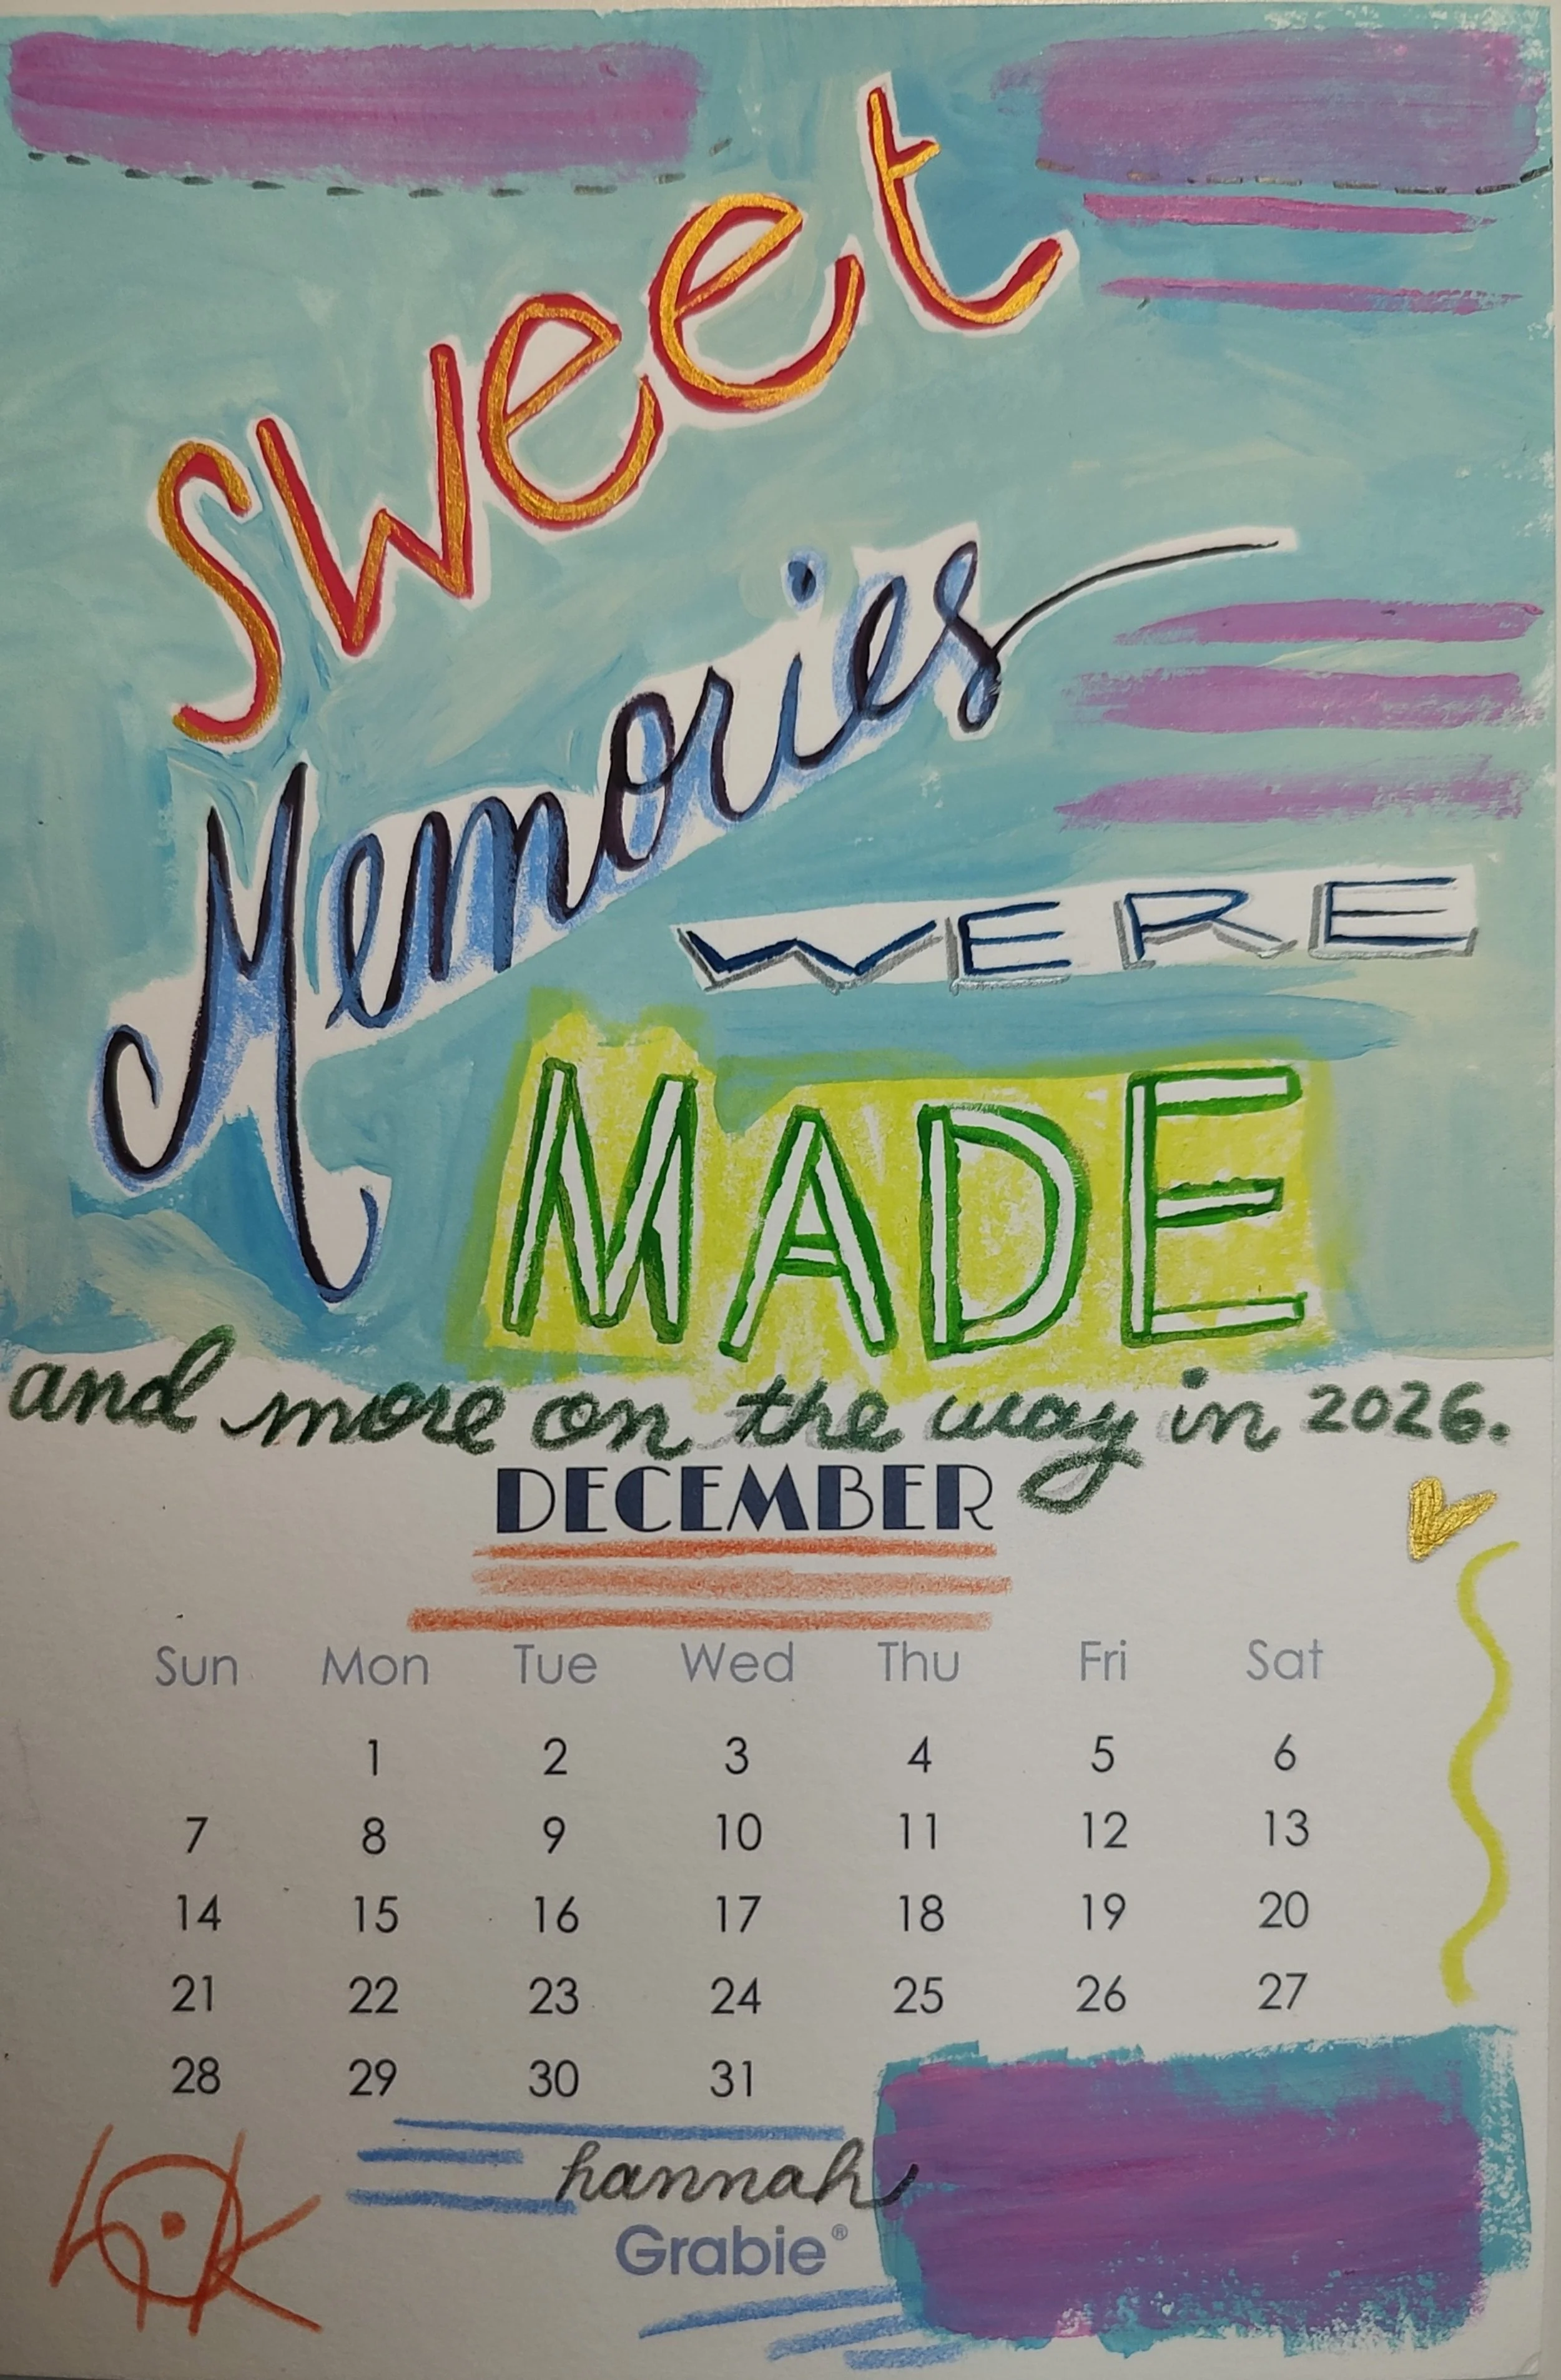 sweet
Memories
WERE
MADE
and more on the way in 2026.
DECEMBER
Sun Mon Tue Wed Thu Fri Sat
1 2 3 4 5 6
7 8 9 10 11 12 13
14 15 16 17 18 19 20
21 22 23 24 25 26 27
28 29 30 31
hannah
Grabie®